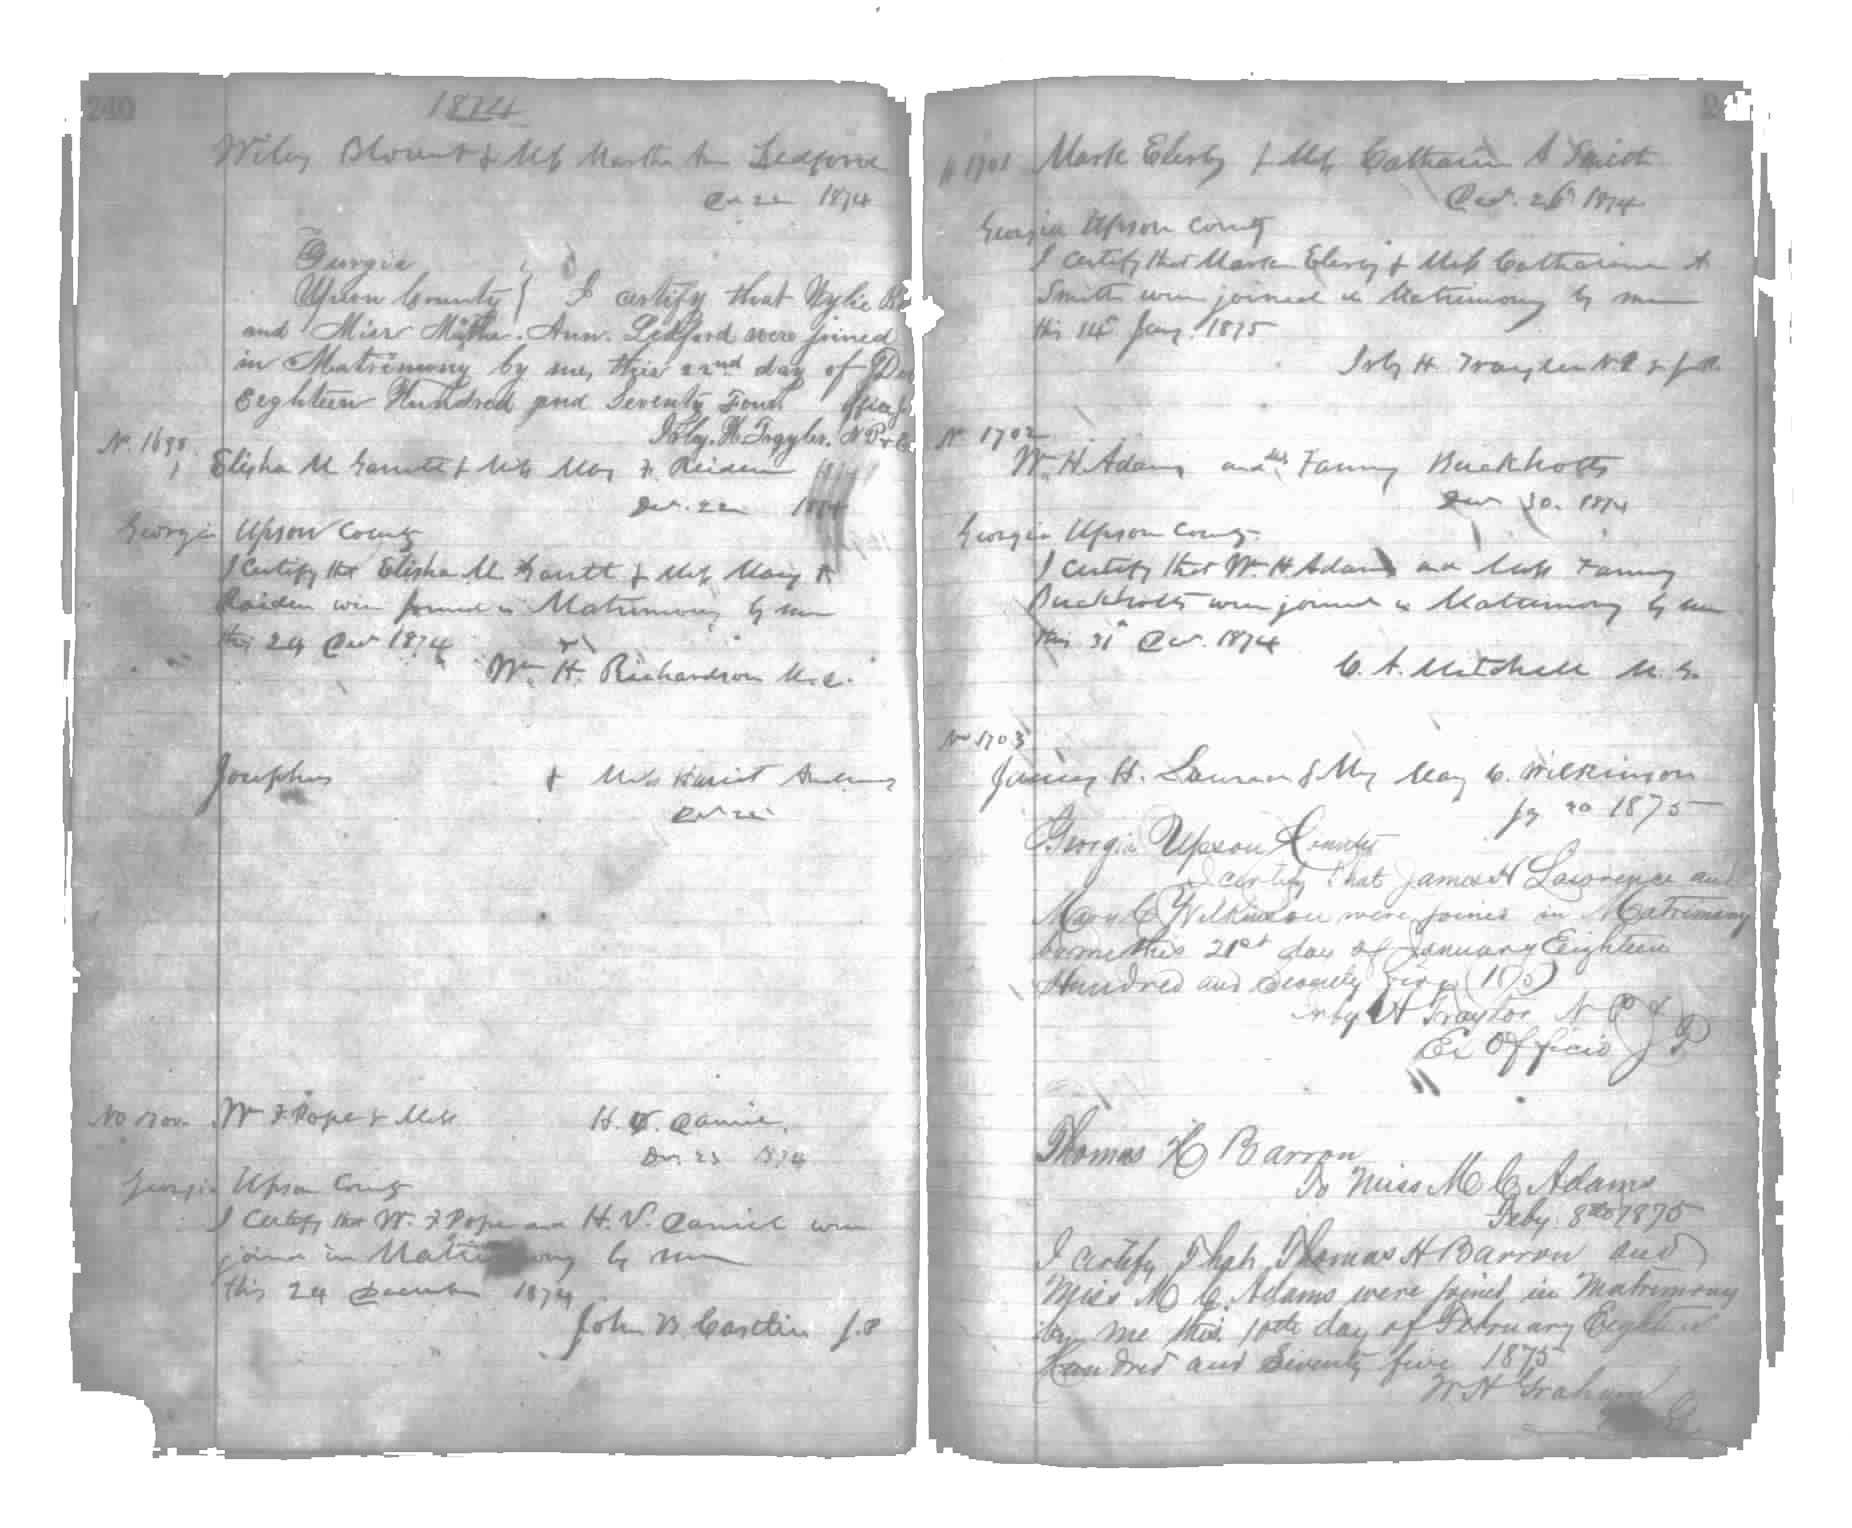 240
1874
Wiley Blount & Miss Martha Ann Ledford
Dec 22 1874
Georgia
Upson County } I certify that Wylie
and Miss Martha. Ann. Ledford were joined
in Matrimony by me, this 22nd day of
Eighteen Hundred and Seventy Four
Irby. H. Traylor. N P &
No. 1698
Elisha M Garrett & Miss Mary F. Reiden
Dec. 22 1874
Georgia Upson County
I certify tht Elisha M Garrett & Miss Mary F
Raiden were joined in Matrimony by me
this 24 Dec 1874
Wm H. Richardson M.G.
Josephus & Miss Harriet
Dec 22
No 1700 Wm F Pope & Miss H. V. Daniel.
Dec 23 1874
Georgia Upson County
I certify tht W. F Pope and H. V. Daniel were
joined in Matrimony by me
this 24 December 1874
John B Castlin J.P
N 1701 Mark Elerby & Miss Catharine A Smith
Dec. 26 1874
Georgia Upson County
I certify that Mark Elerby & Miss Catharine A
Smith were joined in Matrimony by me
this 14th Jany. 1875
Irby H. Traylor N.P & J.P.
No 1702
Wm. H. Adams and Miss Fanny Buckholts
Dec 30. 1874
Georgia Upson County
I certify that Wm. H Adams and Miss Fanny
Buckholts were joined in Matrimony by me
this 31st Dec. 1874
C. A. Mitchell M. G.
No 1703
James H. Lawrence & Mary C. Wilkinson
Jy 20 1875
Georgia Upson County
I certify that James H Lawrence and
Mary C Wilkinson were joined in Matrimony
by me this 21st day of January Eighteen
Hundred and Seventy five (1875)
Irby H Traylor N P &
Ex Officio J P
Thomas H Barron
To Miss M C Adams
Feby. 8th 1875
I certify That Thomas H Barron and
Miss M C. Adams were joined in Matrimony
by me this 10th day of February Eighteen
Hundred and Seventy five 1875
W H Graham